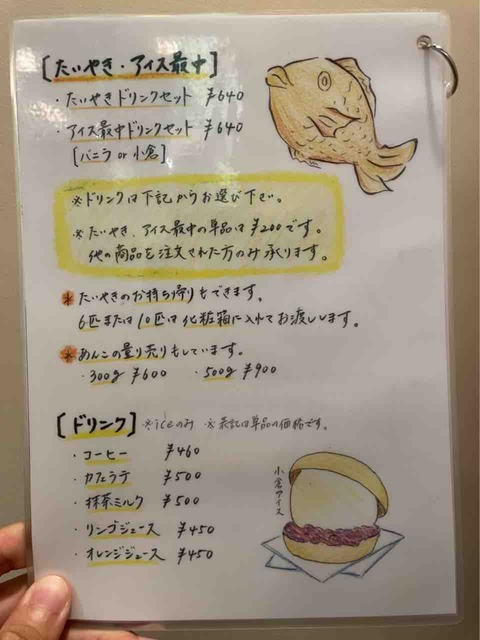 [たいやき・アイス最中]
・たいやきドリンクセット ¥640
・アイス最中ドリンクセット ¥640
[バニラ or 小倉]
※ドリンクは下記からお選び下さい。
※たいやき、アイス最中の単品は¥200です。
他の商品を注文された方のみ承ります。
*たいやきのお持ち帰りもできます。
6匹または10匹は化粧箱に入れてお渡しします。
*あんこの量り売りもしています。
・300g ¥600 ・500g ¥900
[ドリンク] ※iceのみ ※表記は単品の価格です。
・コーヒー ¥460
・カフェラテ ¥500
・抹茶ミルク ¥500
・リンゴジュース ¥450
・オレンジジュース ¥450
小倉アイス